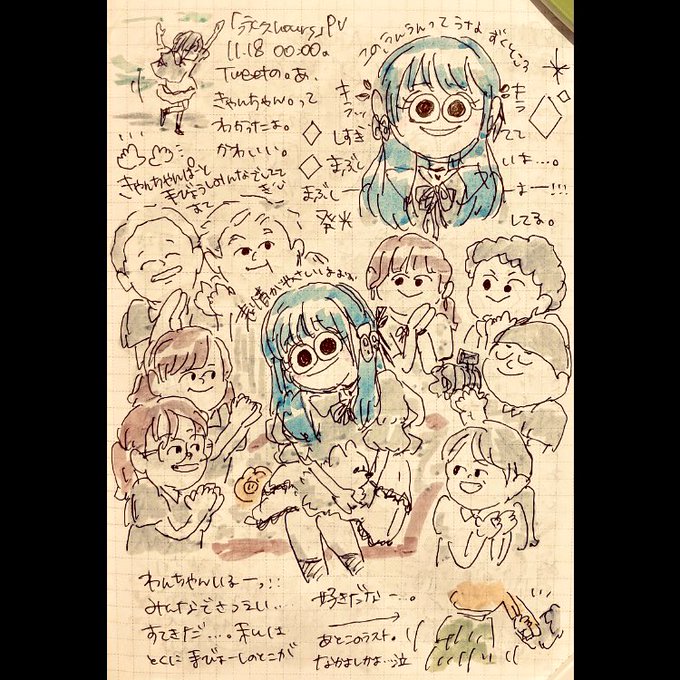 「永久hours」PV
11.18 00:00。
Tweetの。あ、
きゃんちゃん。って
わかったよ。
かわいい。
きゃんちゃんぱーと
まびょうしみんなでしてて
このうんうんってうなずくところ
キラッ
キラ
しすぎ
てて
まぶし
まぶしーーまー!!!
発光
してる。
表情がやさしいよおお
わんちゃんいるーっ!!
みんなでさつえい…
すてきだ…。私は
とくにまびょーしのとこが
好きだなー…。
あとこのラスト。
なかよしかよ…泣